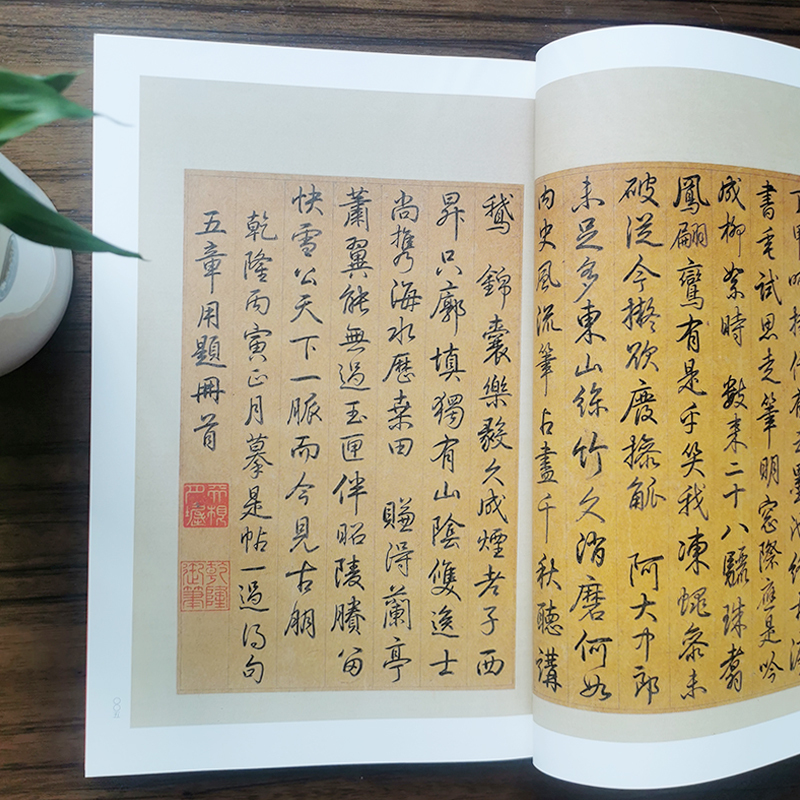 書毛試思走筆明窓際應是吟
成柳絮時 數來二十八驪珠翥
鳳翩鸞有是乎笑我凍蠅參未
破從今擬欲廢操觚 阿大中郎
未足多東山絲竹久消磨何如
內史風流筆占盡千秋聽講
鵝 錦囊樂毅久成煙老子西
昇只廓填獨有山陰雙逸士
尚携海水歷桑田 賺得蘭亭
蕭翼能無過玉匣伴昭陵賸留
快雪公天下一脈而今見古朋
乾隆丙寅正月摹是帖一過得句
五章用題冊首
乾隆御筆